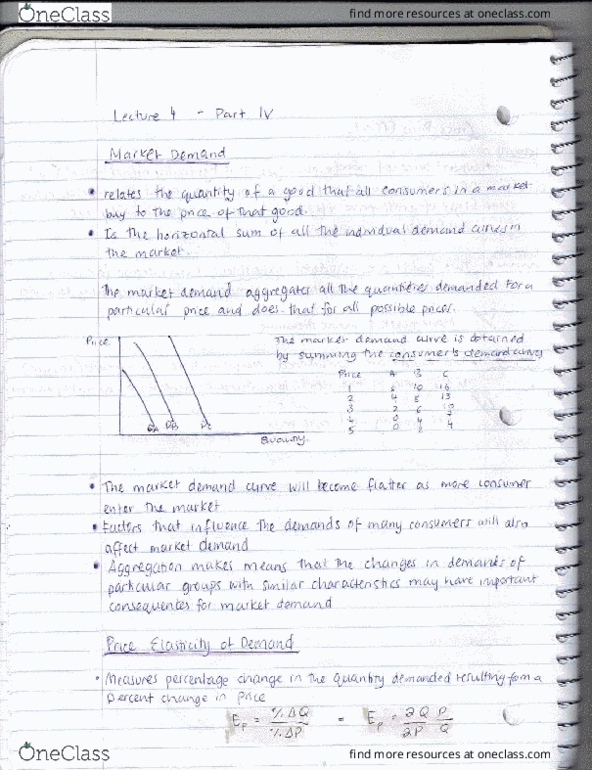 OneClass
find more resources at oneclass.com
Lecture 4 - Part IV
Market Demand
• relates the quantity of a good that all consumers in a market
buy to the price of that good.
• Is the horizontal sum of all the individual demand curves in
the market.
The market demand aggregates all the quantities demanded for a
particular price and does that for all possible prices.
Price
The market demand curve is obtained
by summing the consumer's demand curves
Price A B C
1 6 10 16
2 4 8 13
3 2 6 10
4 0 4 7
5 0 2 4
DA DB DC
Quantity
• The market demand curve will become flatter as more consumer
enter the market
• Factors that influence the demands of many consumers will also
affect market demand
• Aggregation makes means that the changes in demands of
particular groups with similar characteristics may have important
consequences for market demand
Price Elasticity of Demand
• Measures percentage change in the quantity demanded resulting from a
percent change in price
Ep = %ΔQ / %ΔP = Ep = ∂Q/∂P P/Q
OneClass
find more resources at oneclass.com